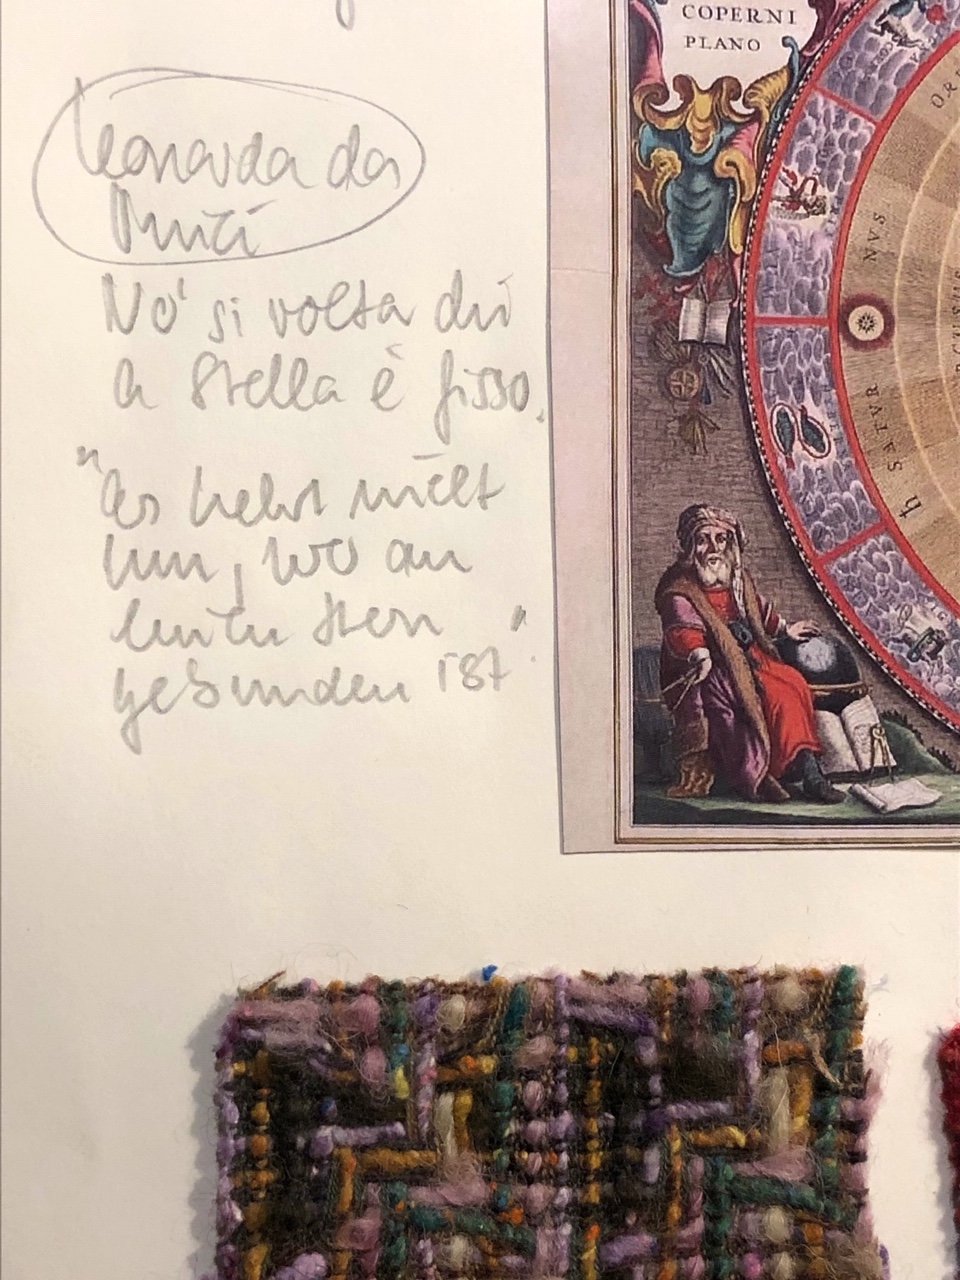 COPERNI
PLANO
Leonarda da
Vinci
No si volta chi
a stella è fisso.
"es kehrt nicht
um, wo an
einen Stern
gebunden ist"
OR
NVS
SATVR